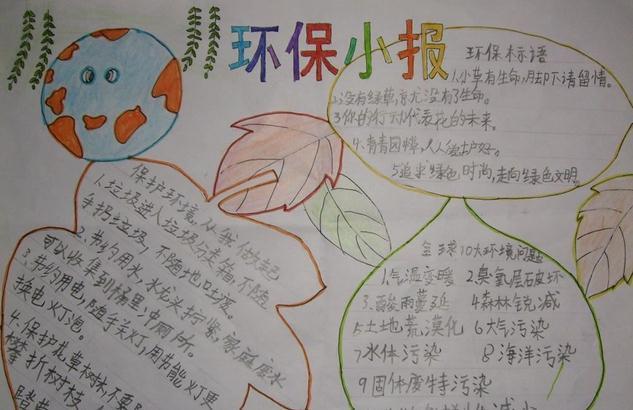 环保小报
环保标语
1.小草有生命,脚下请留情。
2.没有绿草,就没有了生命。
3.你的行动代表花的未来。
4.青青园 人人爱护好。
5.追求绿色时尚,走向绿色文明。
保护环境,从我做起
1.垃圾进入垃圾分类箱,不随
手扔垃圾,不随地吐痰。
2.节约用水,水龙头拧紧,家庭废水
可以收集到桶里,冲厕所。
3.节约用电,随手关灯,用节能灯更
换电灯泡。
4.保护花草树木,不要
攀折树枝
踏草
全球10大环境问题
1.气温变暖 2.臭氧层破坏
3.酸雨蔓延 4森林锐减
5土地荒漠化 6大气污染
7水体污染 8海洋污染
9固体废特污染
减少